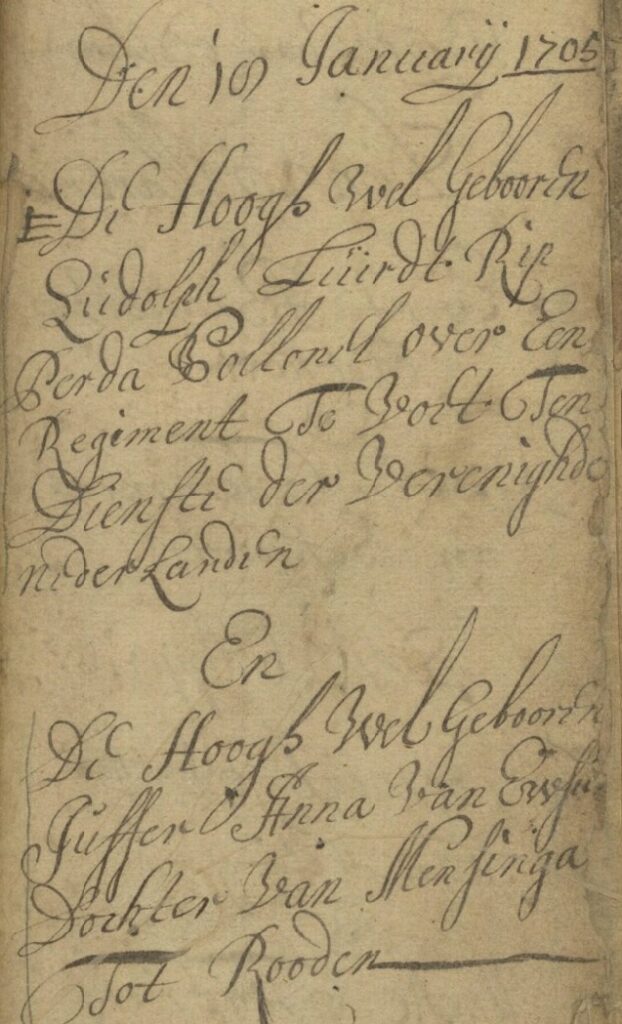 Den 18 Januarÿ 1705
De Hoogh Wel Gebooren
Ludolph Luirdt Rip
Perda Collonel over Een
Regiment Te Voet Ten
Dienste der Verenighde
nederlanden
En
De Hoogh Wel Gebooren
Juffer Anna Van Ewsu
Dochter Van Mensinga
Tot Rooden